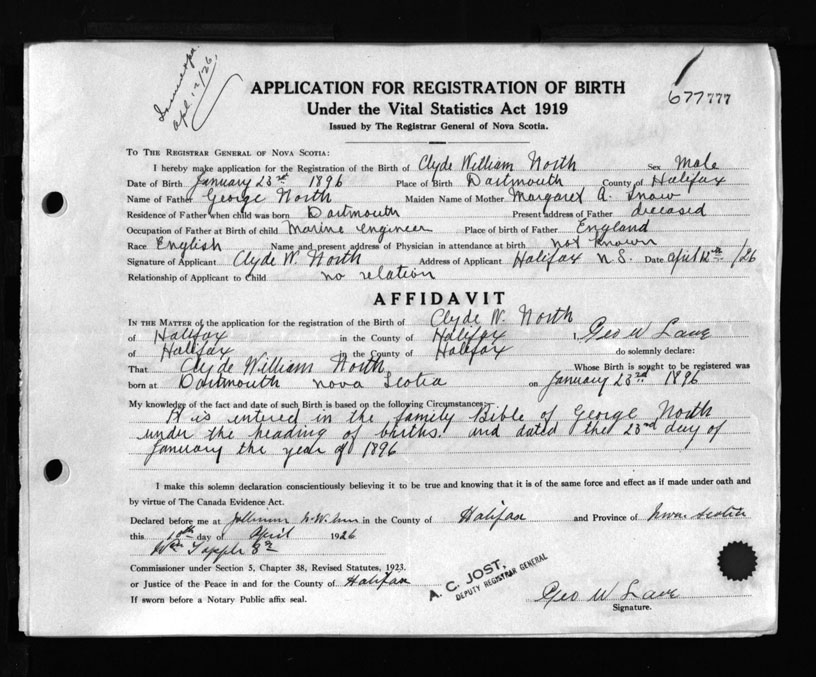 Apl. 12/26
APPLICATION FOR REGISTRATION OF BIRTH
Under the Vital Statistics Act 1919
677777
Issued by The Registrar General of Nova Scotia.
To The Registrar General of Nova Scotia:
I hereby make application for the Registration of the Birth of Clyde William North Sex Male
Date of Birth January 23rd 1896 Place of Birth Dartmouth County of Halifax
Name of Father George North Maiden Name of Mother Margaret A. Snow
Residence of Father when child was born Dartmouth Present address of Father deceased
Occupation of Father at Birth of child Marine engineer Place of birth of Father England
Race English Name and present address of Physician in attendance at birth not known
Signature of Applicant Clyde W. North Address of Applicant Halifax N.S. Date April 12th/26
Relationship of Applicant to Child no relation
AFFIDAVIT
In the Matter of the application for the registration of the Birth of Clyde W. North
of Halifax in the County of Halifax I, Geo W Lane
of Halifax in the County of Halifax do solemnly declare:
That Clyde William North Whose Birth is sought to be registered was
born at Dartmouth Nova Scotia on January 23rd 1896
My knowledge of the fact and date of such Birth is based on the following Circumstances:-
It is entered in the family Bible of George North
under the heading of births. and dated the 23rd day of
January the year of 1896
I make this solemn declaration conscientiously believing it to be true and knowing that it is of the same force and effect as if made under oath and
by virtue of The Canada Evidence Act.
Declared before me at in the County of Halifax and Province of Nova Scotia
this day of April 1926
Commissioner under Section 5, Chapter 38, Revised Statutes, 1923.
or Justice of the Peace in and for the County of Halifax
A. C. JOST,
DEPUTY REGISTRAR GENERAL
If sworn before a Notary Public affix seal.
Geo W Lane
Signature.